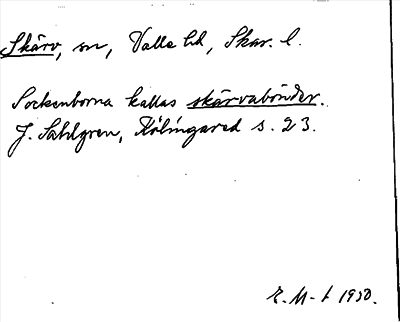 Skärv, sn, Valle hd, Skar. l.
Sockenborna kallas skärvabönder.
J. Sahlgren, Hölingared s. 23.
E. M-t 1930.